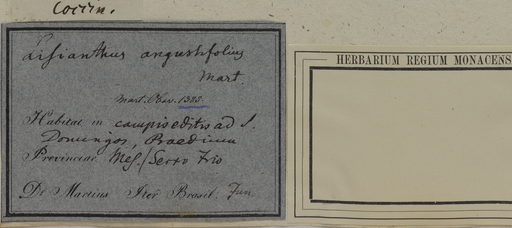 Lisianthus angustifolius
Mart.
Mart. Obsv. 1388.
Habitat in campis editis ad S.
Domingos, Praedium
Provinciae Serro Frio
De Martius Iter Brasil. Jun
HERBARIUM REGIUM MONACENS